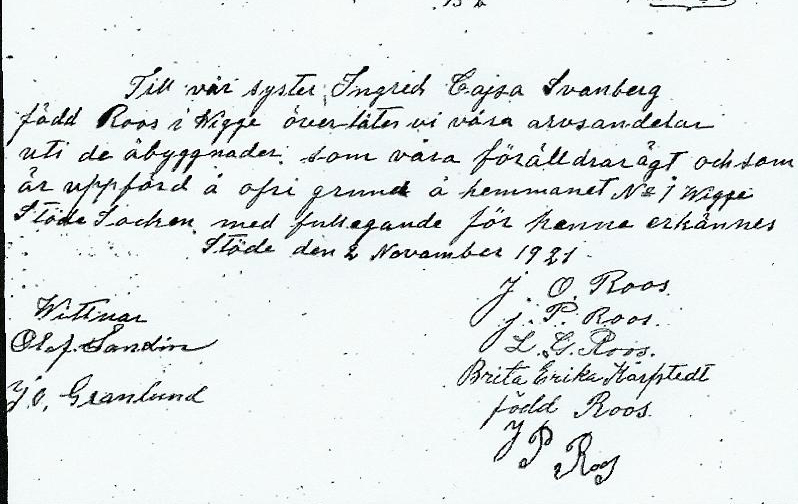 Till vår syster Ingrid Cajsa Svanberg
född Roos i Wigge överlåter vi våra arvsandelar
uti de åbyggnader som våra föräldrar ägt och som
är uppförd å ofri grund å hemmanet No 1 Wigge
Stöde Socken med fullt egande för henne erkännes
Stöde den 2 November 1921
J. O. Roos.
Wittnar
J. P. Roos.
Olof Sandin
L. G. Roos.
Brita Erika Kärfstedt
J O, Granlund
född Roos
J P Roos